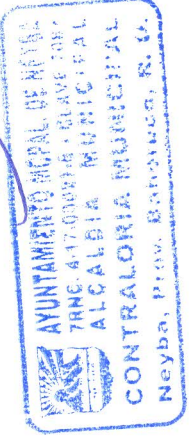 AYUNTAMIENTO MCPAL. DE NEYBA
ALCALDIA MUNICIPAL
CONTRALORIA MUNICIPAL
Neyba, Prov. Bahoruco, R. D.